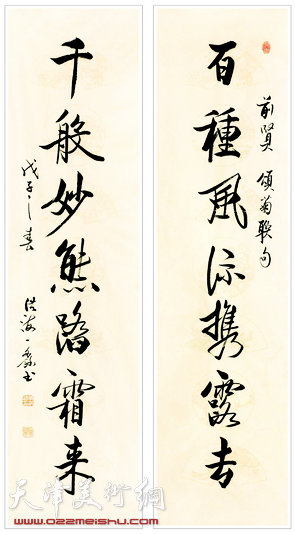 前賢 頌菊聯句
百種風流携露去
千般妙態踏霜来
戊子之春
天津美術網
www.022meishu.com